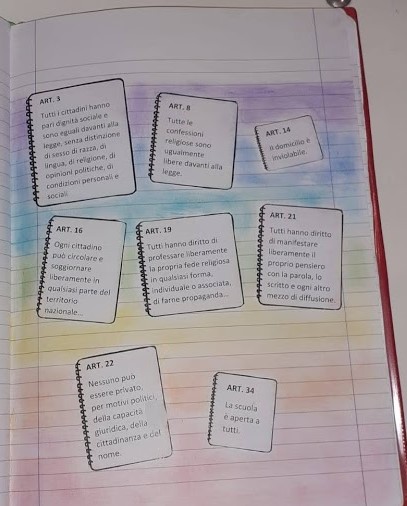 ART. 3
Tutti i cittadini hanno
pari dignità sociale e
sono eguali davanti alla
legge, senza distinzione
di sesso di razza, di
lingua, di religione, di
opinioni politiche, di
condizioni personali e
sociali.
ART. 8
Tutte le
confessioni
religiose sono
ugualmente
libere davanti alla
legge.
ART. 14
o domicilio è
inviolabile.
ART. 16
Ogni cittadino
può circolare e
soggiornare
liberamente in
qualsiasi parte del
territorio
nazionale...
ART. 19
Tutti hanno diritto di
professare liberamente
la propria fede religiosa
in qualsiasi forma,
individuale o associata,
di farne propaganda...
ART. 21
Tutti hanno diritto
di manifestare
liberamente il
proprio pensiero
con la parola, lo
scritto e ogni altro
mezzo di diffusione.
ART. 22
Nessuno può
essere privato,
per motivi politici,
della capacità
giuridica, della
cittadinanza e del
nome.
ART. 34
La scuola
è aperta a
tutti.